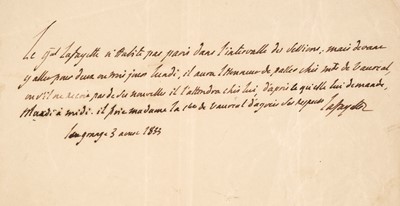 Le gal Lafayette n'habite pas paris dans l'intervalle des sessions, mais devant
y aller pour deux ou trois jours lundi, il aura l'honneur de passer chés mde de Vaucral,
ou s'il ne reçoit pas de ses nouvelles il l'attendra chés lui, d'après ce qu'elle lui demande,
Mardi à midi. il prie madame la ctesse de Vaucral d'agréer ses respects Lafayette
Lagrange 3 aoust 1833